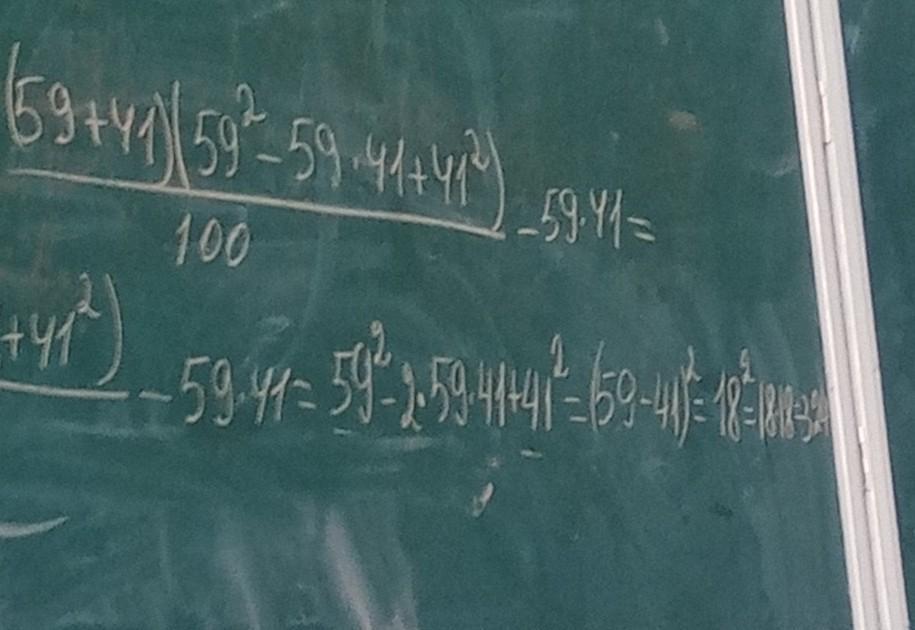 (59+41)(59²-59·41+41²)
100
-59·41=
+41²)
-59·41=59²-2·59·41+41²=(59-41)²=18²=18·18=324